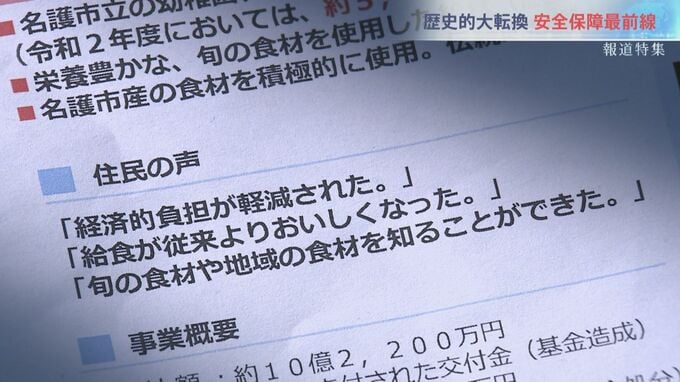 歴史的大転換 安全保障最前線
報道特集
名護市立の幼稚園
(令和2年度においては、約5,
栄養豊かな、旬の食材を使用した
名護市産の食材を積極的に使用。伝統
住民の声
「経済的負担が軽減された。」
「給食が従来よりおいしくなった。」
「旬の食材や地域の食材を知ることができた。」
事業概要
額:約10億2,200万円
付された交付金(基金造成)